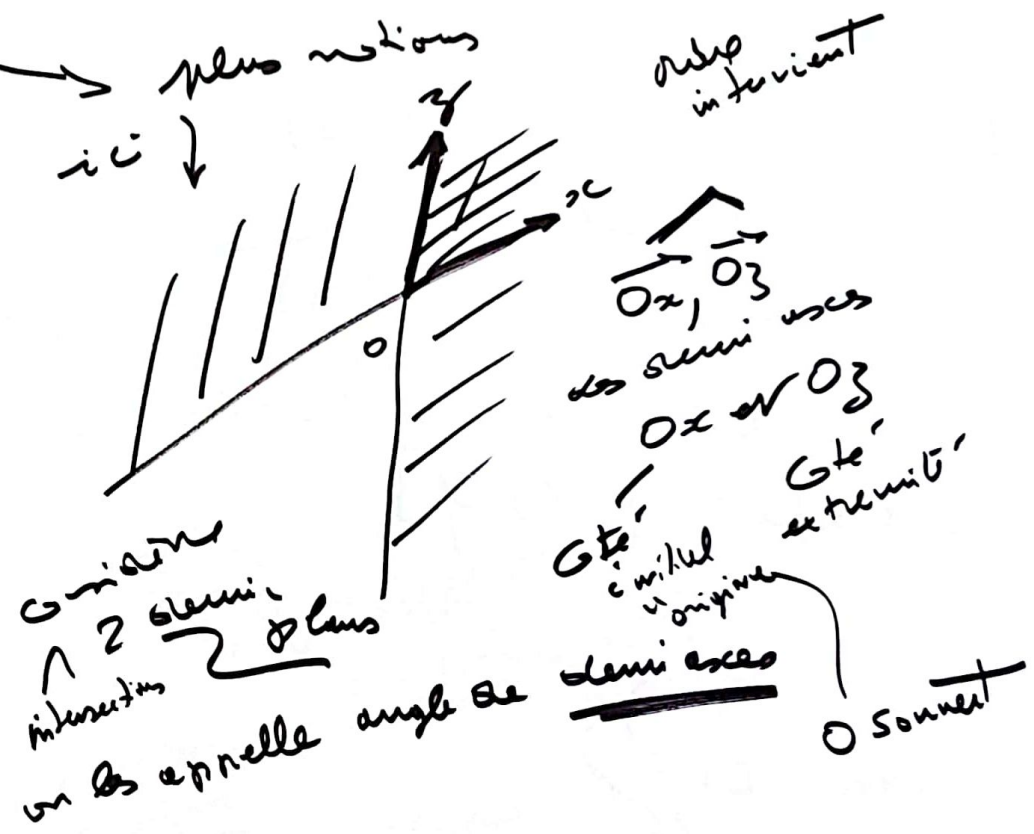 → plus notions
ici ↓
ordre
intervient
z
x
O
Ox, Oz
les demi axes
Ox et Oz
Côté
extremité
Côté
initial
origine
considère
∩ 2 demi-
plans
intersection
on les appelle angle de demi axes
O sommet